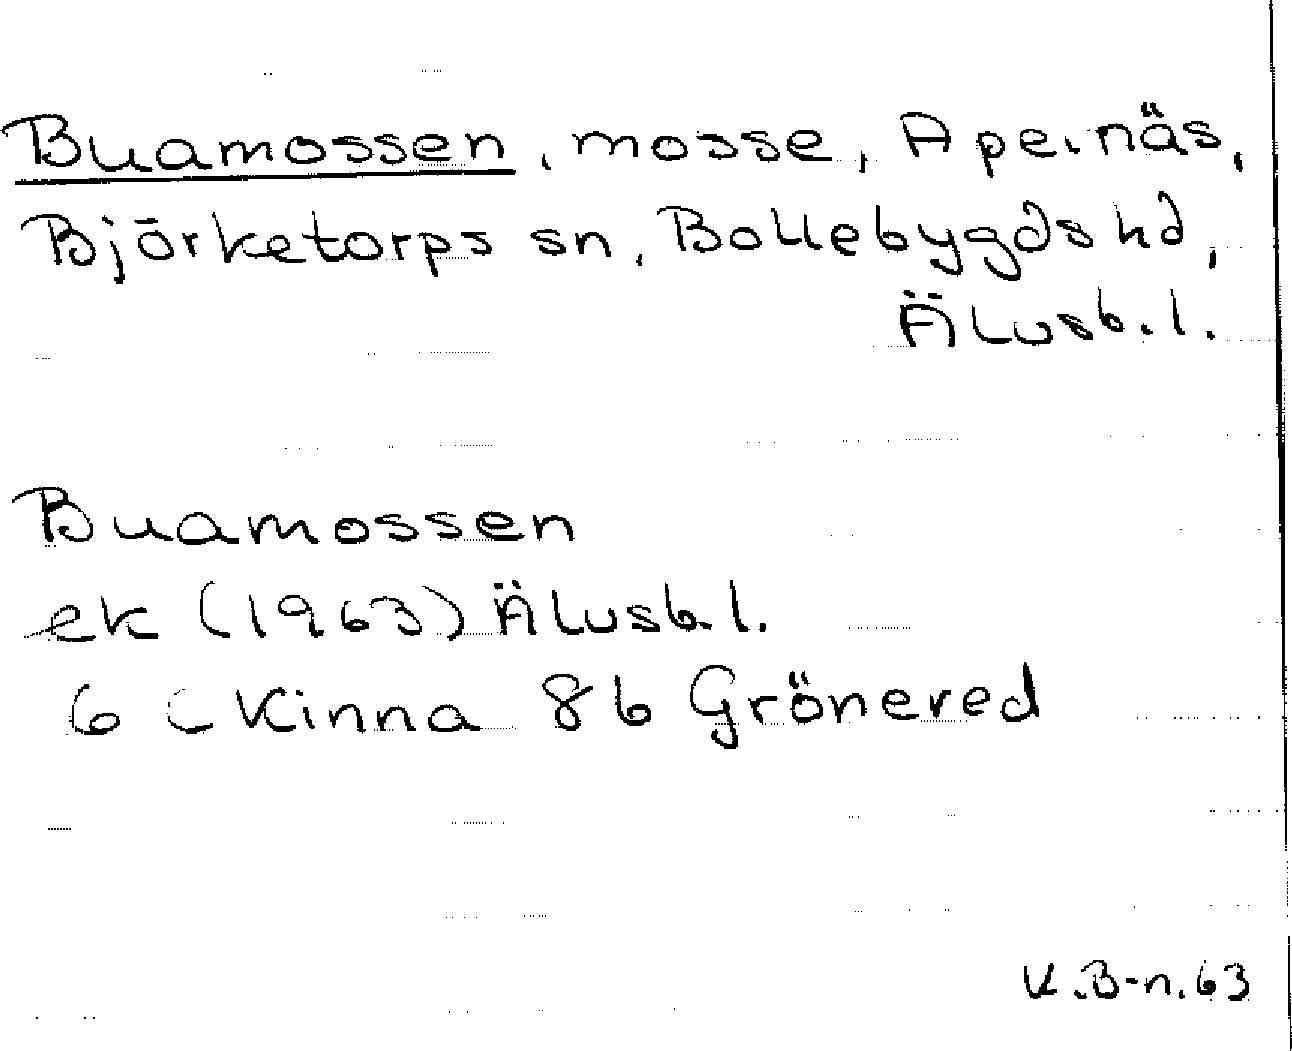 Buamossen, mosse, Apelnäs,
Björketorps sn, Bollebygds hd,
Älvsb. l.
Buamossen
ek (1963) Älvsb. l.
6 C Kinna 8b Grönered
K.B-n. 63